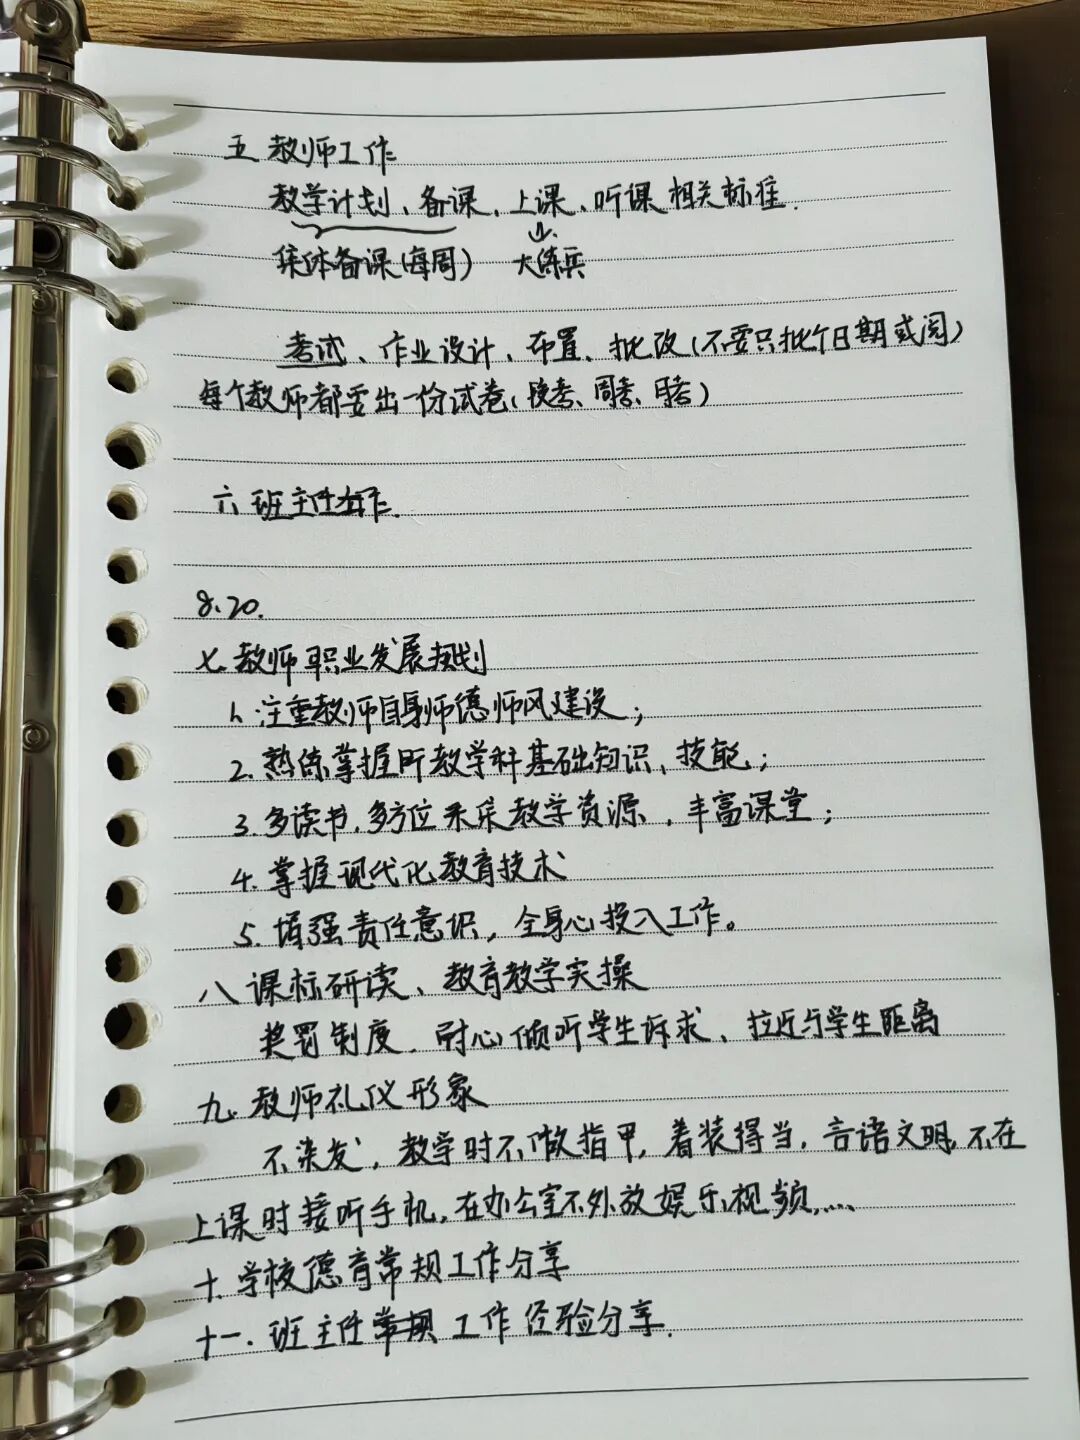 五.教师工作
教学计划、备课、上课、听课相关标准.
集体备课(每周) 大练兵
考试、作业设计、布置、批改(不要只批个日期或阅)
每个教师都要出一份试卷(段考、周考、月考)
六.班主任工作.
8.20.
七.教师职业发展规划
1.注重教师自身师德师风建设;
2.熟练掌握所教学科基础知识、技能;
3.多读书,多方位采集教学资源,丰富课堂;
4.掌握现代化教育技术
5.增强责任意识,全身心投入工作。
八.课标研读、教育教学实操
奖罚制度.耐心倾听学生诉求、拉近与学生距离
九.教师礼仪形象
不染发,教学时不做指甲,着装得当,言语文明,不在
上课时接听手机,在办公室不外放娱乐视频,....
十.学校德育常规工作分享
十一.班主任常规工作经验分享.